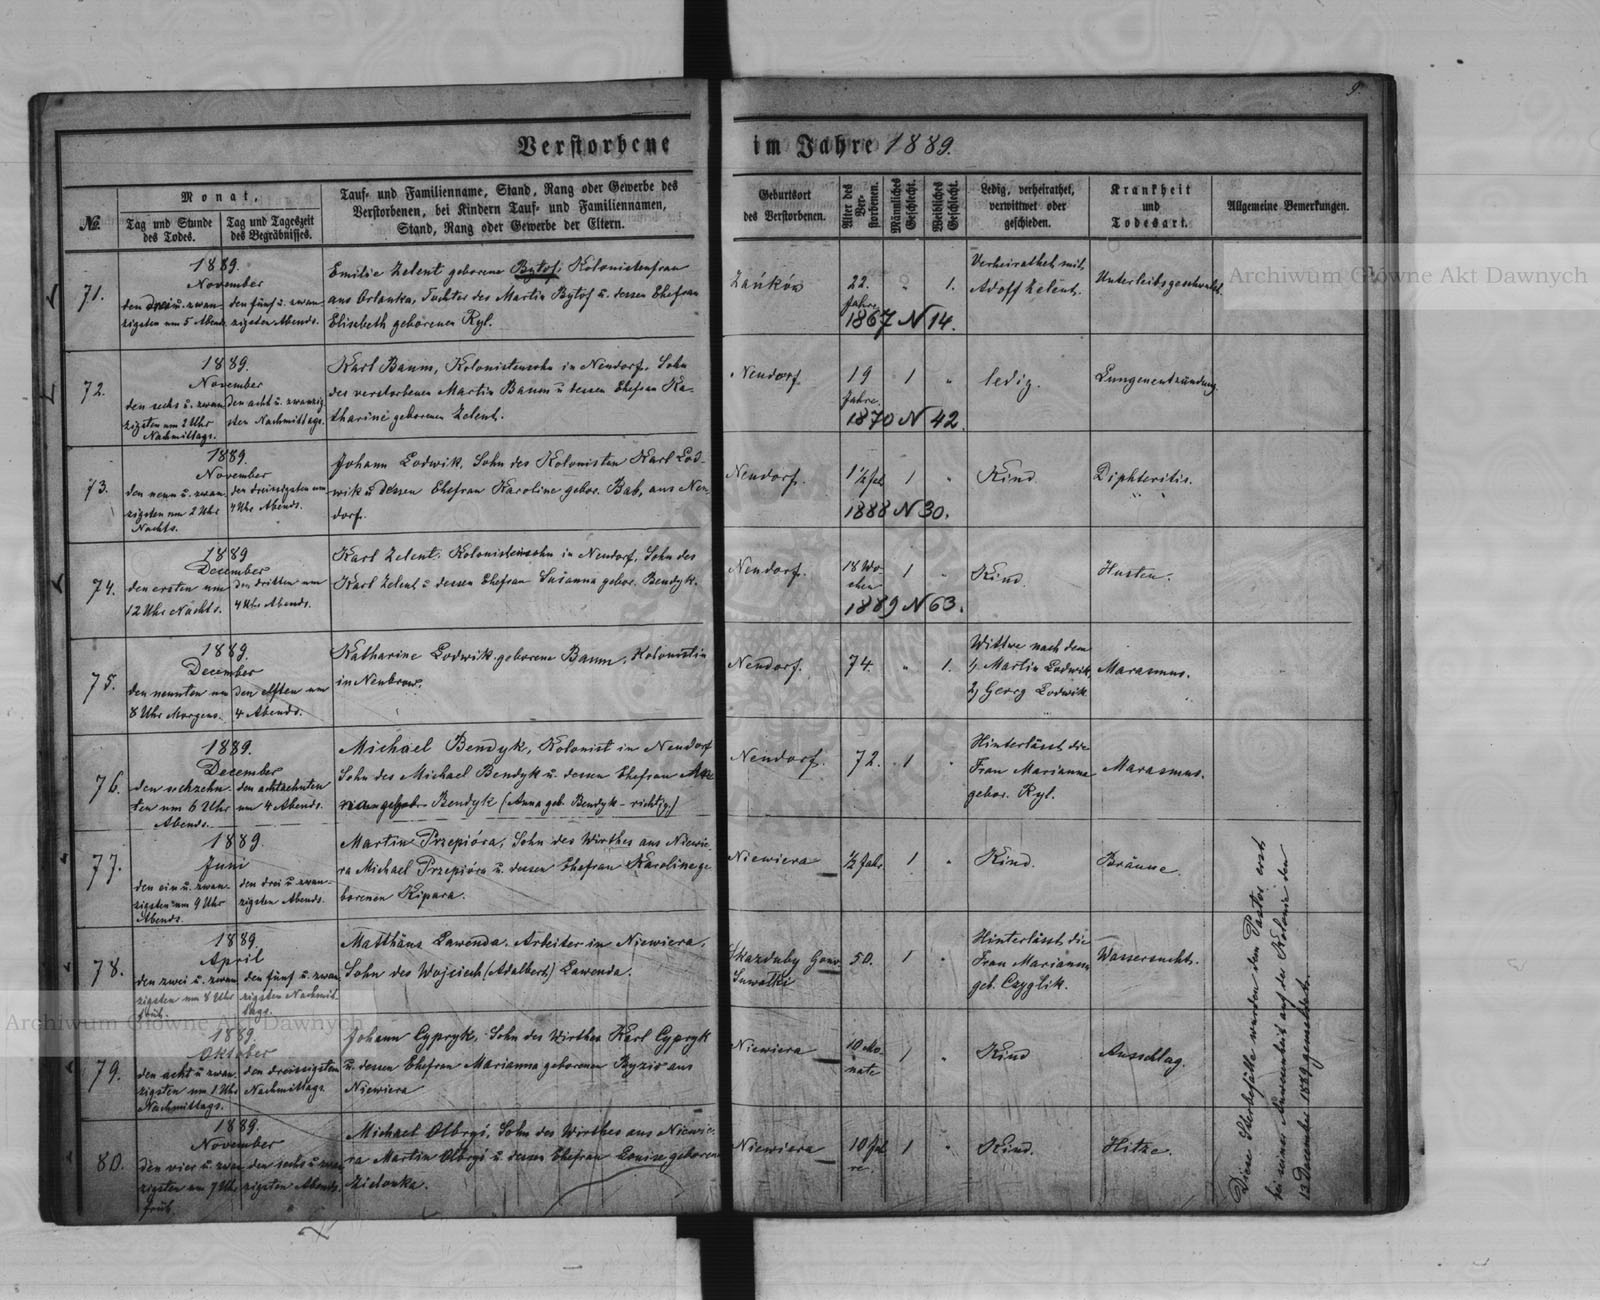 9.
Verstorbene im Jahre 1889.
№
Monat,
Tag und Stunde des Todes.
Tag und Tageszeit des Begräbnisses.
Tauf- und Familienname, Stand, Rang oder Gewerbe des
Verstorbenen, bei Kindern Tauf- und Familiennamen,
Stand, Rang oder Gewerbe der Eltern.
Geburtsort
des Verstorbenen.
Alter des Ver-
storbenen.
Männliches
Geschlecht.
Weibliches
Geschlecht.
Ledig, verheirathet,
verwittwet oder
geschieden.
Krankheit
und
Todesart.
Allgemeine Bemerkungen.
71.
1889.
November
den drei u. zwan-
zigsten um 5 Abends.
den fünf u. zwan-
zigsten Abends.
Emilie Zelent geborene Bytof, Kolonistenfrau
aus Orlanka, Tochter des Martin Bytof u. dessen Ehefrau
Elisabeth geborenen Ryl.
Zańków
22.
Jahre
1867 N 14.
1.
Verheirathet mit
Adolf Zelent.
Unterleibsgeschwulst.
72.
1889.
November
den sechs u. zwan-
zigsten um 2 Uhr
Nachmittags.
den acht u. zwanzig-
sten Nachmittags.
Karl Baum, Kolonistensohn in Neudorf, Sohn
des verstorbenen Martin Baum u dessen Ehefrau Ka-
tharine geborenen Zelent.
Neudorf
19
Jahre.
1870 N 42.
1
ledig.
Lungenentzündung
73.
1889.
November
den neun u. zwan-
zigsten um 2 Uhr
Nachts.
den dreissigsten um
4 Uhr Abends.
Johann Lodwik, Sohn des Kolonisten Karl Lod-
wik u dessen Ehefrau Karoline gebor. Bab, aus Neu-
dorf.
Neudorf.
1½ Jah
1888 N 30.
1
Kind
Diphteritis.
74.
1889
December
den ersten um
12 Uhr Nachts.
den dritten um
4 Uhr Abends.
Karl Zelent. Kolonistensohn in Neudorf, Sohn des
Karl Zelent u dessen Ehefrau Susanna gebor. Bendyk.
Neudorf.
18 Wo-
chen
1889 N 63.
1
Kind
Husten.
75.
1889.
December
den neunten um
8 Uhr Morgens.
den elften um
4 Abends.
Katharine Lodwik, geborene Baum, Kolonistin
in Neubrow.
Neudorf.
74.
1.
Wittwe nach dem
1, Martin Lodwik
2, Georg Lodwik
Marasmus.
76.
1889.
December
den sechzehn-
ten um 6 Uhr
Abends.
den achtzehnten
um 4 Abends.
Michael Bendyk, Kolonist in Neudorf
Sohn des Michael Bendyk u. dessen Ehefrau Ma-
rianne gebor. Bendyk (Anna geb. Bendyk - richtig.)
Neudorf.
72.
1
Hinterlässt die
Frau Marianna
gebor. Ryl.
Marasmus.
77.
1889.
Juni
den ein u. zwan-
zigsten um 9 Uhr
Abends.
den drei u zwan-
zigsten Abends.
Martin Przepióra, Sohn des Wirthes aus Niewie-
ra Michael Przepióra u. dessen Ehefrau Karoline ge-
borenen Kipara.
Niewiera
½ Jahr
1
Kind.
Bräune.
78.
1889.
April
den zwei u. zwan-
zigsten um 8 Uhr
früh.
den fünf u. zwan-
zigsten Nachmit-
tags.
Matthäus Lawenda, Arbeiter in Niewiera,
Sohn des Wojciech (Adalbert) Lawenda.
Skazduby Gouv.
Suwalki
50.
1
Hinterlässt die
Frau Marianna
geb. Czyglik.
Wassersucht.
79.
1889.
Oktober
den acht u. zwan-
zigsten um 1 Uhr
Nachmittags.
den dreissigsten
Nachmittags
Johann Cypryk, Sohn des Wirthes Karl Cypryk
u. dessen Ehefrau Marianna geborenen Byzio aus
Niewiera
Niewiera
10 Mo-
nate
1
Kind
Ausschlag.
80.
1889.
November
den vier u. zwan-
zigsten um 7 Uhr
früh.
den sechs u zwan-
zigsten Abends.
Michael Olbryś, Sohn des Wirthes aus Niewie-
ra Martin Olbryś u dessen Ehefrau Louise geborene
Zielonka.
Niewiera
10 Jah-
re.
1
Kind.
Hitze.
Diese Sterbefälle wurden dem Pastor erst
bei seiner Anwesenheit auf der Kolonie den
12 December 1889 gemeldet.
Archiwum Główne Akt Dawnych
Archiwum Główne Akt Dawnych